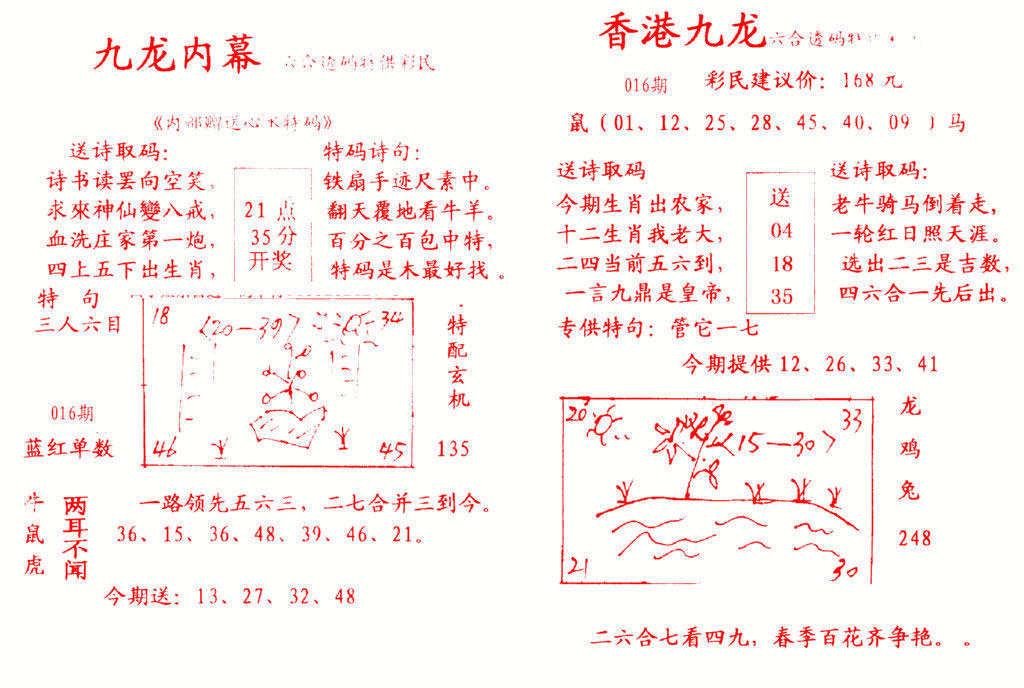 九龙内幕 六合透码特供彩民
《内部赠送心水特码》
送诗取码：
诗书读罢向空笑，
求來神仙變八戒，
血洗庄家第一炮，
四上五下出生肖，
21 点
35 分
开奖
特码诗句：
铁扇手迹尺素中。
翻天覆地看牛羊。
百分之百包中特，
特码是木最好找。
特 句
三人六目
016期
蓝红单数
18
〈20—39〉
34
46
45
特配玄机
135
牛
鼠
虎
两耳不闻
一路领先五六三，二七合并三到今。
36、15、36、48、39、46、21。
今期送：13、27、32、48
香港九龙 六合透码特
016期 彩民建议价：168 元
鼠（01、12、25、28、45、40、09 ）马
送诗取码
今期生肖出农家，
十二生肖我老大，
二四当前五六到，
一言九鼎是皇帝，
送
04
18
35
送诗取码：
老牛骑马倒着走，
一轮红日照天涯。
选出二三是吉数，
四六合一先后出。
专供特句：管它一七
今期提供 12、26、33、41
20
33
〈15—30〉
21
30
龙
鸡
兔
248
二六合七看四九，春季百花齐争艳。。